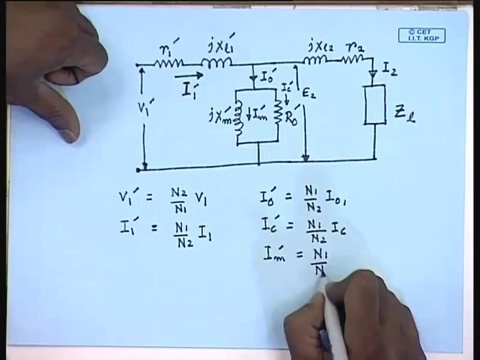 © CET
I.I.T. KGP
r₁′ jxℓ₁′ jxℓ₂ r₂
I₁′ I₀′ I₂
V₁′ jXm′ Im′ Ic′ R₀′ E₂ Zℓ
V₁′ = N₂/N₁ V₁
I₁′ = N₁/N₂ I₁
I₀′ = N₁/N₂ I₀,
Ic′ = N₁/N₂ Ic
Im′ = N₁/N